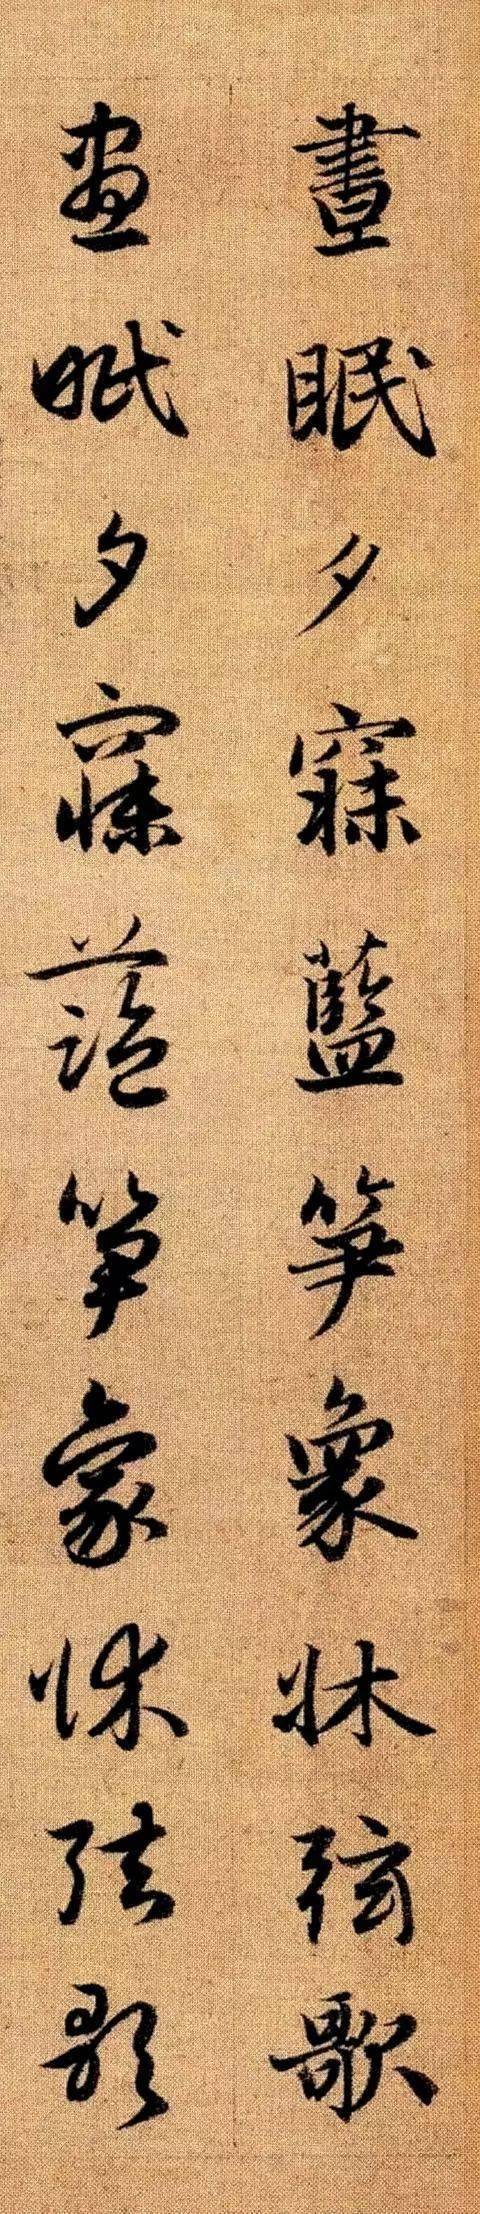 晝眠夕寐藍笋象牀弦歌
晝眠夕寐藍笋象牀弦歌